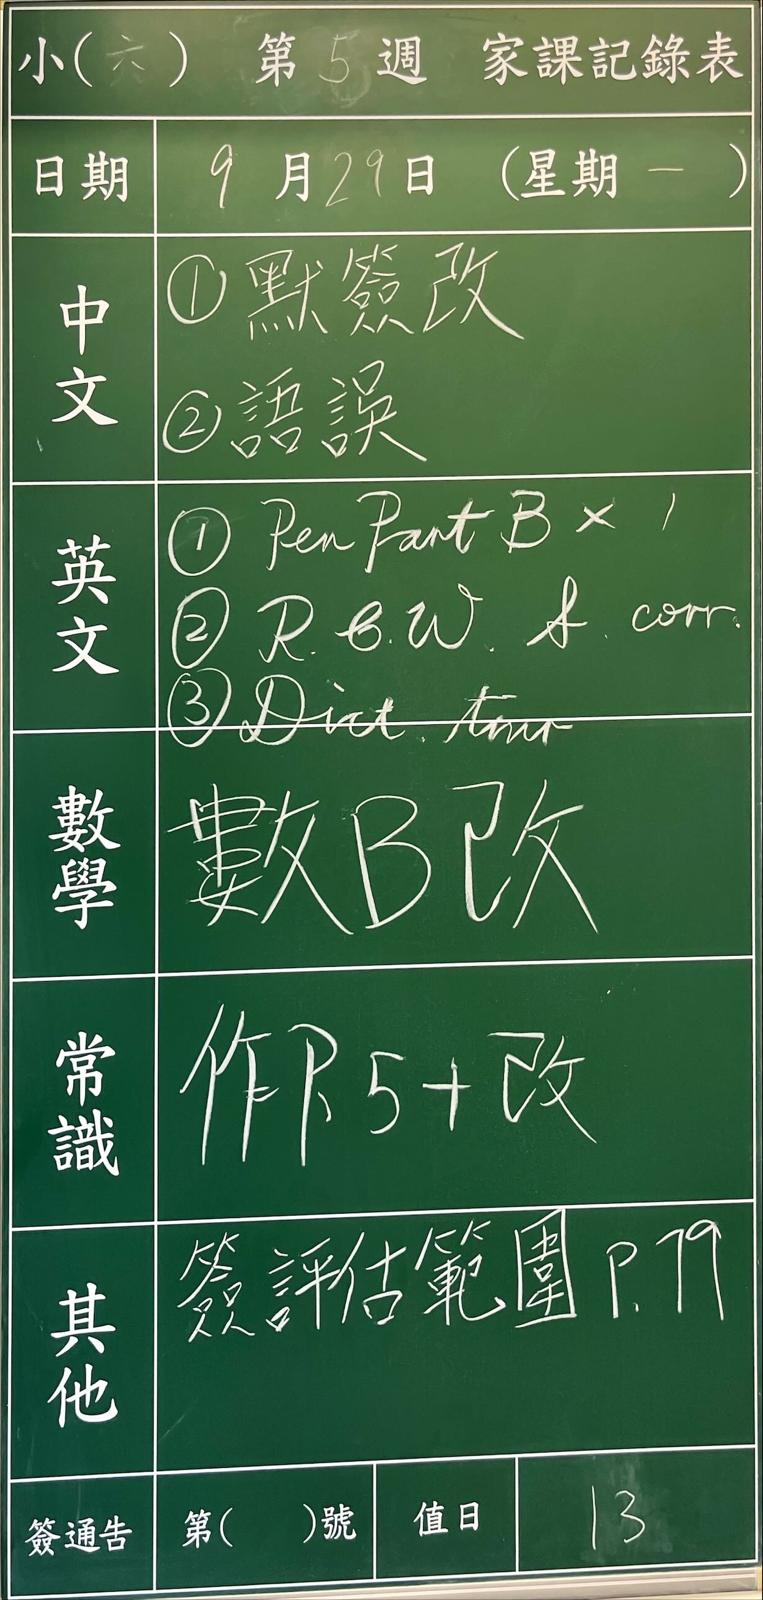 小(六) 第5週 家課記錄表
日期 9月29日 (星期一)
中文
①默簽改
②語誤
英文
① Pen Part B × 1
② R.B.W. & corr.
③ Dict. tmr
數學
數B改
常識
作P.5+改
其他
簽評估範圍 P.79
簽通告 第( )號 值日 13